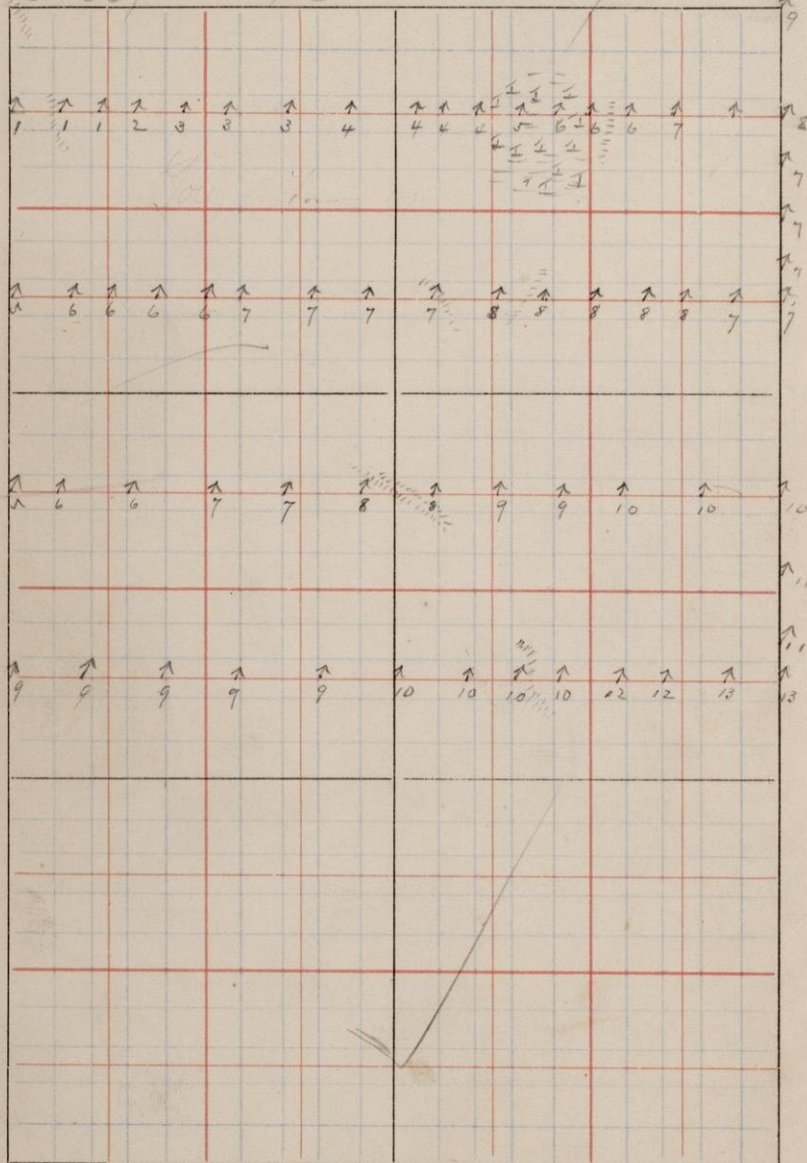 9
1 1 1 2 3 3 3 4 4 4 4 5 6 6 6 7 8
7
7
7
5 6 6 6 6 7 7 7 7 8 8 8 8 8 7 7
5 6 6 7 7 8 8 9 9 10 10 10
11
11
9 9 9 9 9 10 10 10 10 12 12 13 13